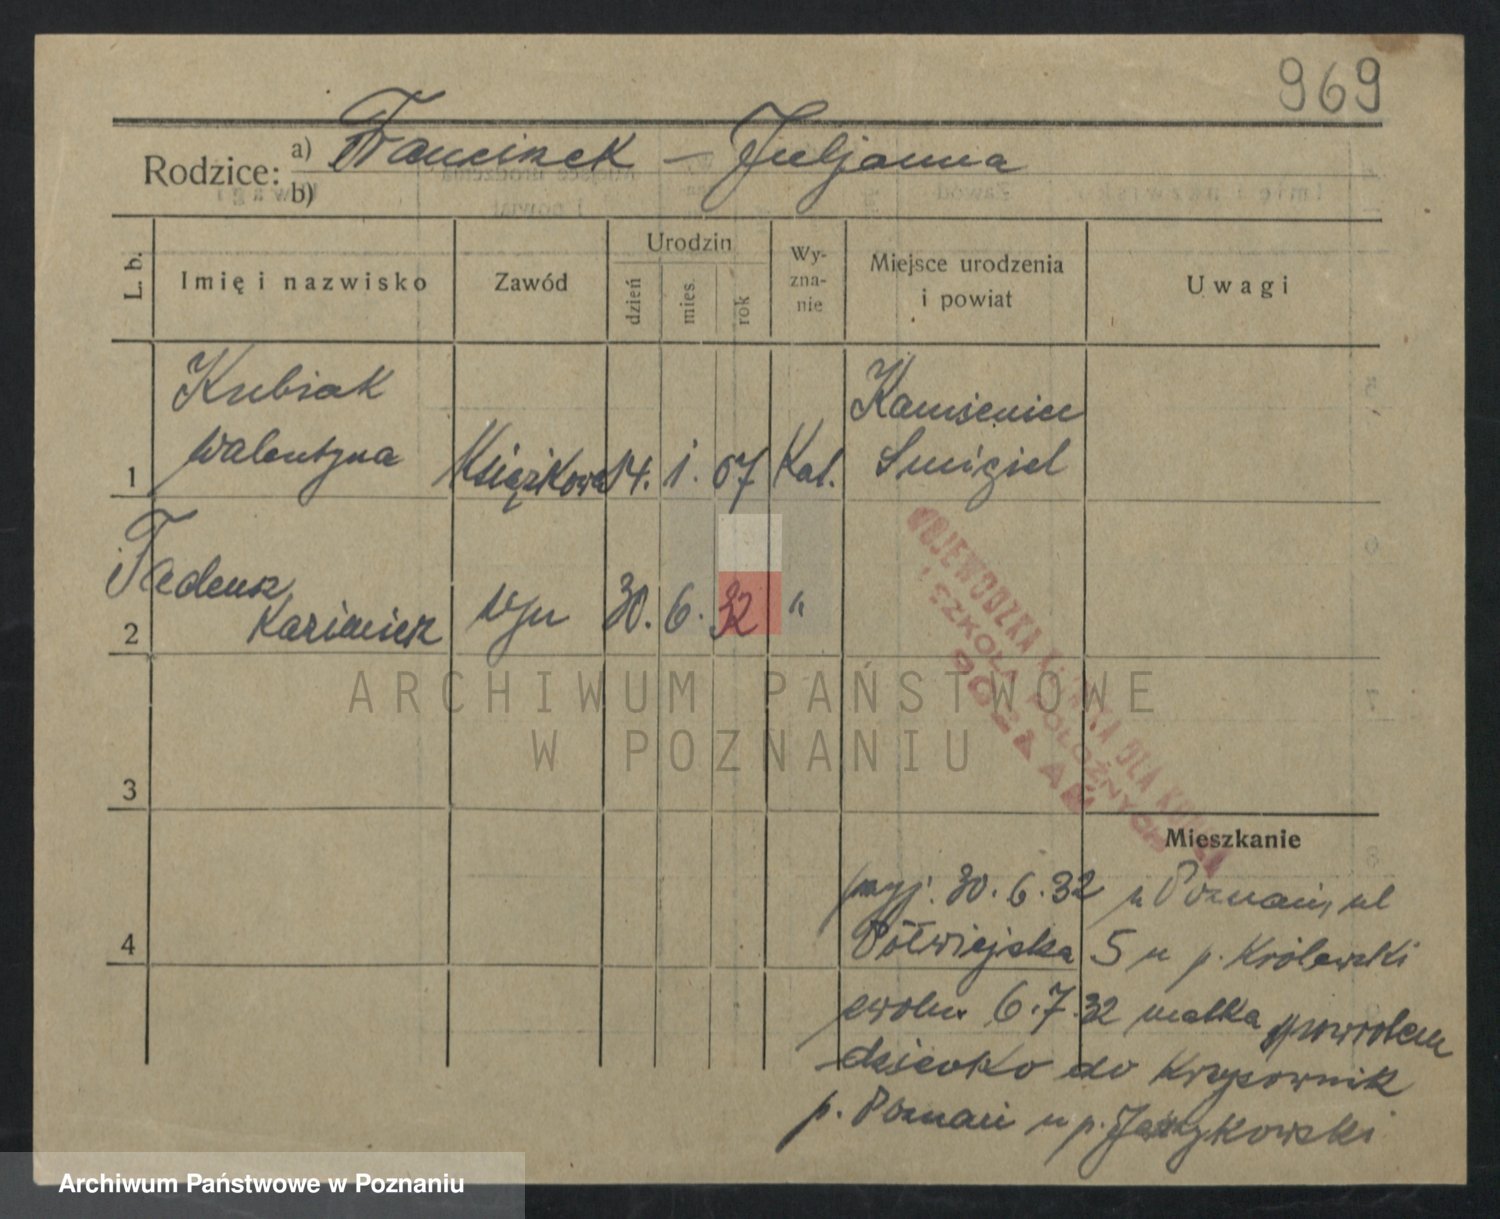 969
Rodzice: a) Franciszek — Juljanna
b)
L. b. Imię i nazwisko Zawód Urodzin dzień mies. rok Wy-zna-nie Miejsce urodzenia i powiat Uwagi
1 Kubiak Walentyna Książkowa 14. 1. 07 Kat. Kamieniec Smigiel
2 Tadeusz Kazimierz syn 30. 6. 32 "
WOJEWÓDZKA KLINIKA DLA KOBIET
I SZKOŁA POŁOŻNYCH
POZNAŃ
ARCHIWUM PAŃSTWOWE
W POZNANIU
3
Mieszkanie
4
przyj. 30. 6. 32 z Poznań, ul
Półwiejska 5 u p. Królewski
zwoln. 6. 7. 32 matka z powrotem
dziecko do Krzyżownik
p. Poznań u p. Jeżykowski
Archiwum Państwowe w Poznaniu